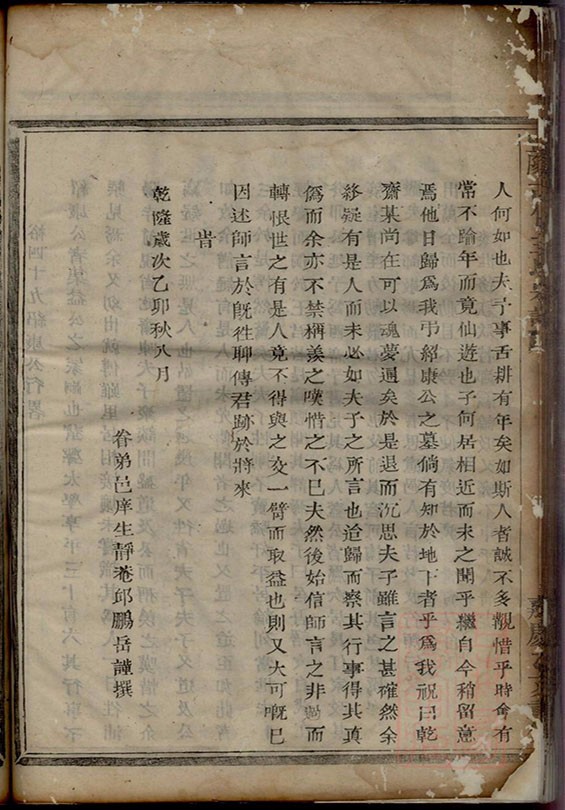 人何如也夫子事舌耕有年矣如斯人者誠不多覯惜乎時會有
常不踰年而竟仙遊也子何居相近而未之聞乎繼自今稍留意
焉他日歸爲我弔紹康公之墓倘有知於地下者乎爲我祝曰乾
齋某尚在可以魂夢通矣於是退而沉思夫子雖言之甚確然余
終疑有是人而未必如夫子之所言也迨歸而察其行事得其真
僞而余亦不禁稱羨之嘆惜之不已夫然後始信師言之非過而
轉恨世之有是人竟不得與之交一臂而取益也則又大可嘅已
因述師言於旣徃聊傳君跡於將來
旹
乾隆歲次乙卯秋八月
眷弟邑庠生靜菴邱鵬岳謹撰